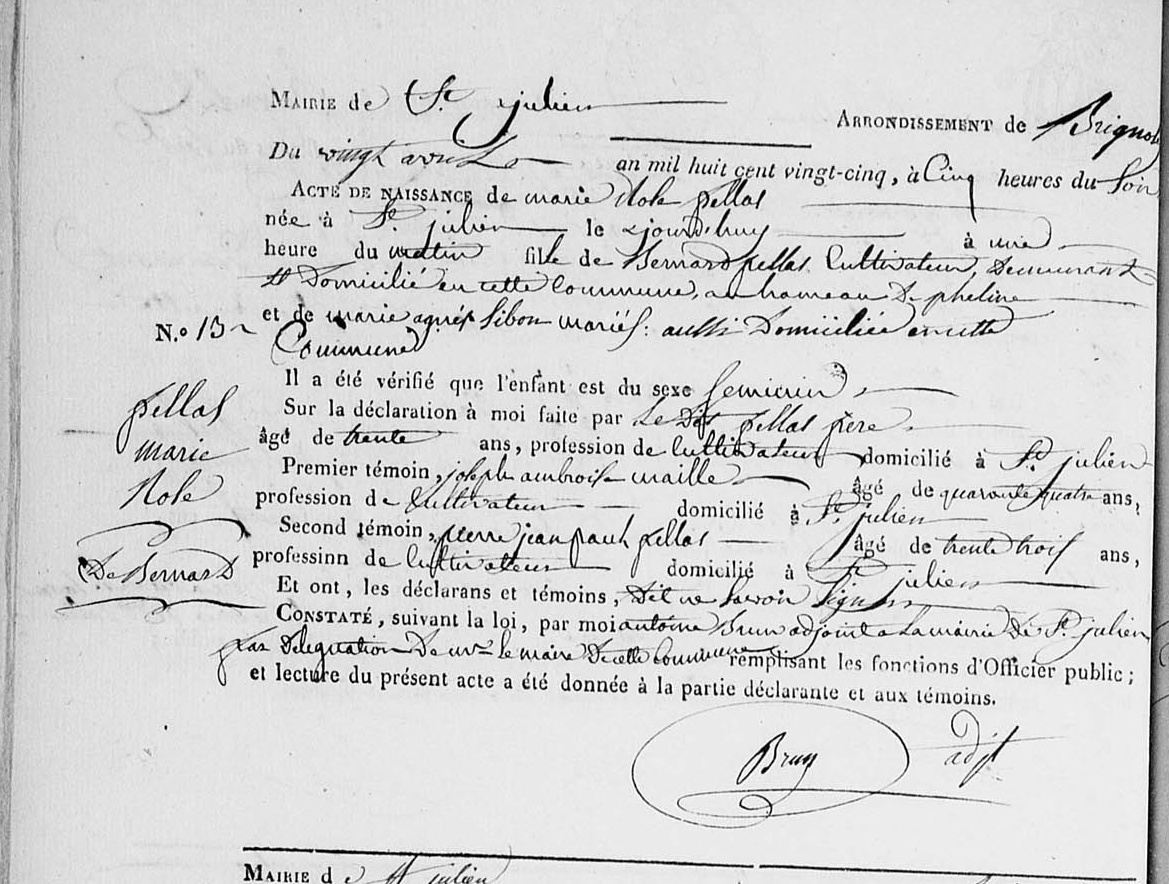 MAIRIE de St. julien
ARRONDISSEMENT de Brignoles
Du vingt avril an mil huit cent vingt-cinq, à Cinq heures du Soir
ACTE DE NAISSANCE de marie Rose pellas
née à St. julien le ajourd'huy à une
heure du matin fille de Bernard pellas Cultivateur, Demeurant
et Domicilié en cette Commune, au hameau De pheline
et de marie agnés Sibon mariés: aussi Domiciliée en cette
N.o 13 Commune
Il a été vérifié que l'enfant est du sexe feminin
Sur la déclaration à moi faite par Le Dit pellas père
âgé de trente ans, profession de Cultivateur domicilié à St. julien
Premier témoin, joseph ambroise maille âgé de quarante quatre ans,
profession de Cultivateur domicilié à St. julien
Second témoin, pierre jean paul pellas âgé de trente trois ans,
professinn de Cultivateur domicilié à St. julien
Et ont, les déclarans et témoins, Dit ne Savoir Signer
CONSTATÉ, suivant la loi, par moi antoine Brun adjoint a La mairie De St. julien
par Delegation De mr. le maire De cette Commune remplisant les fonctions d'Officier public;
et lecture du présent acte a été donnée à la partie déclarante et aux témoins.
pellas
marie
Rose
De Bernard
Brun adjt
MAIRIE de St julien